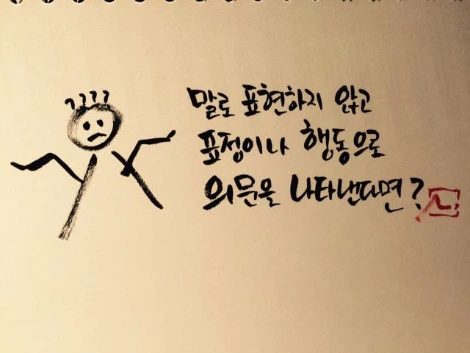 ????
말로 표현하지 않고
표정이나 행동으로
의문을 나타낸다면?